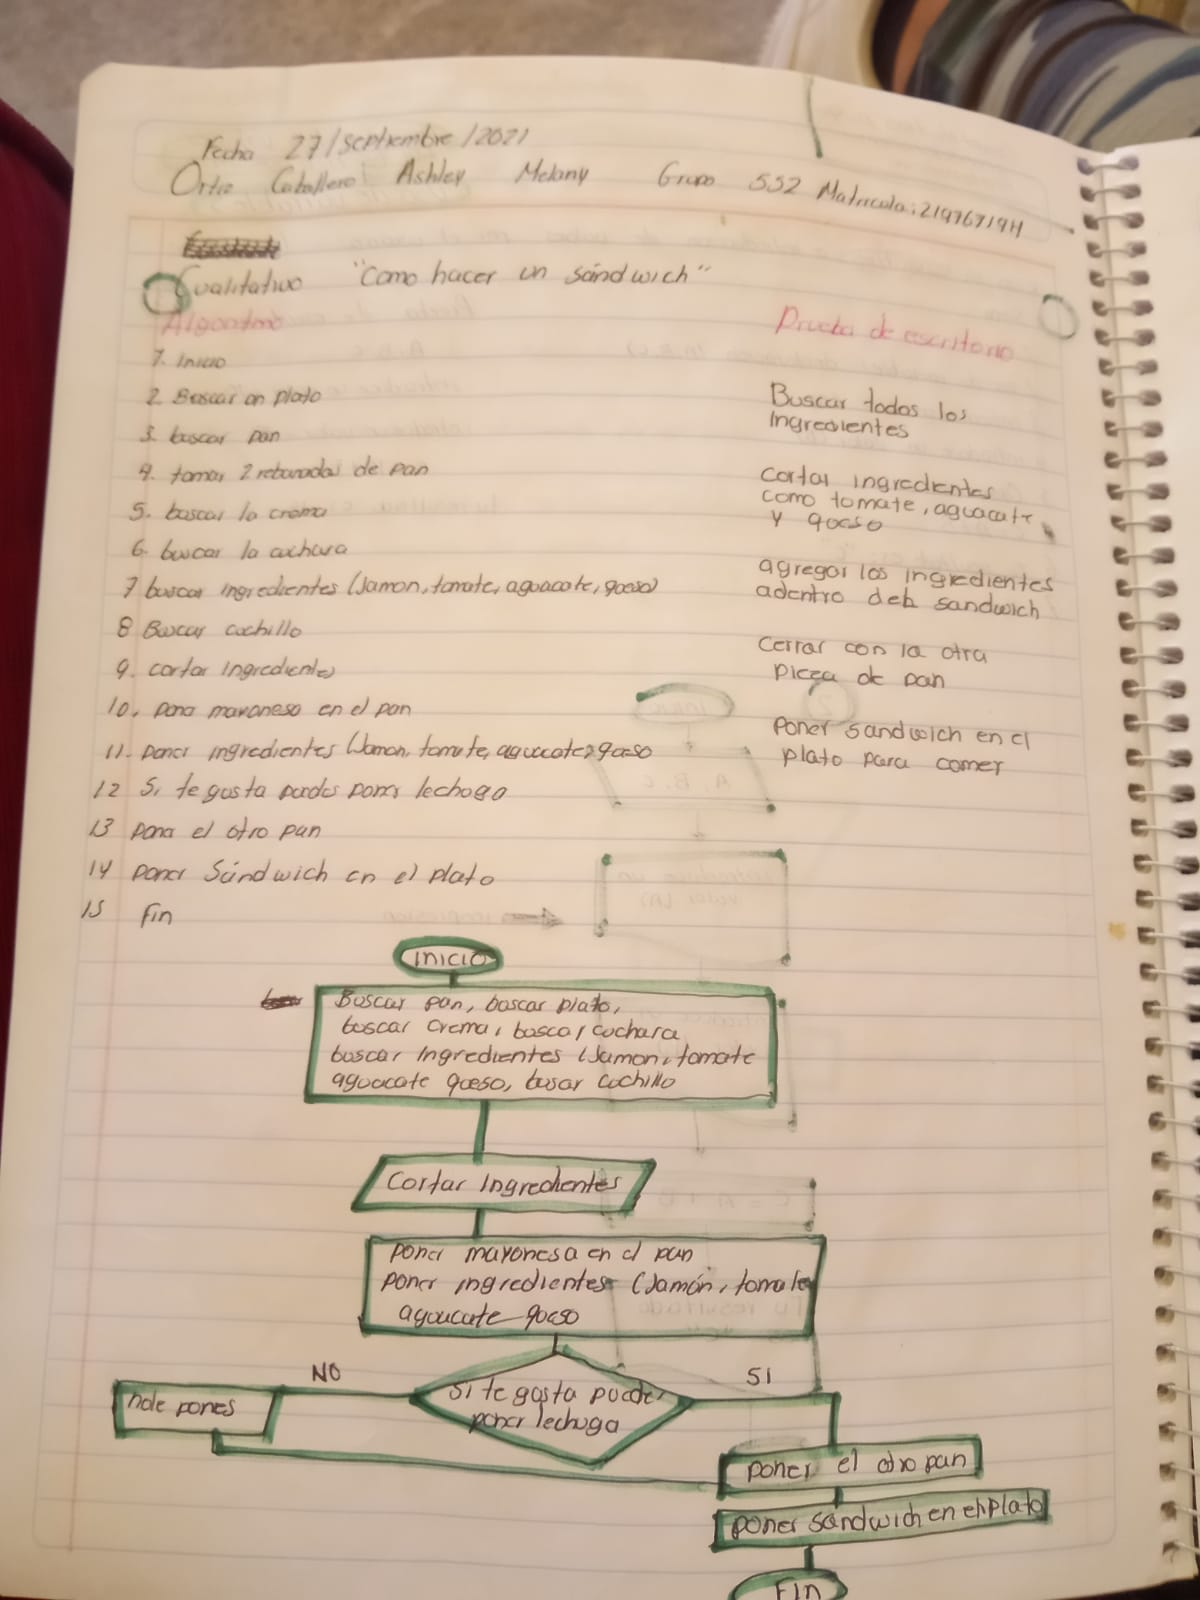 Fecha 27/Septiembre/2021
Ortiz Caballero Ashley Melany Grupo 552 Matricula: 21976719H
Cualitativo "Como hacer un sándwich"
Algoritmo
1. Inicio
2. Buscar un plato
3. buscar pan
4. tomar 2 rebanadas de pan
5. buscar la crema
6. buscar la cuchara
7 buscar ingredientes (Jamon, tomate, aguacate, queso)
8 Buscar cuchillo
9. cortar ingredientes
10. poner mayonesa en el pan
11. poner ingredientes (Jamon, tomate, aguacate, queso
12 Si te gusta puedes poner lechuga
13 poner el otro pan
14 poner Sándwich en el plato
15 Fin
Prueba de escritorio
Buscar todos los
Ingredientes
Cortar ingredientes
como tomate, aguacate
y queso
agregar los ingredientes
adentro del sandwich
Cerrar con la otra
pieza de pan
poner sandwich en el
plato para comer
INICIO
Buscar pan, buscar plato,
buscar crema, buscar cuchara
buscar Ingredientes (Jamon, tomate
aguacate queso, busar cuchillo
Cortar Ingredientes
poner mayonesa en el pan
poner ingredientes (Jamón, tomate
aguacate queso
NO
SI
Si te gusta puedes
poner lechuga
nole pones
poner el otro pan
poner sandwich en el plato
FIN